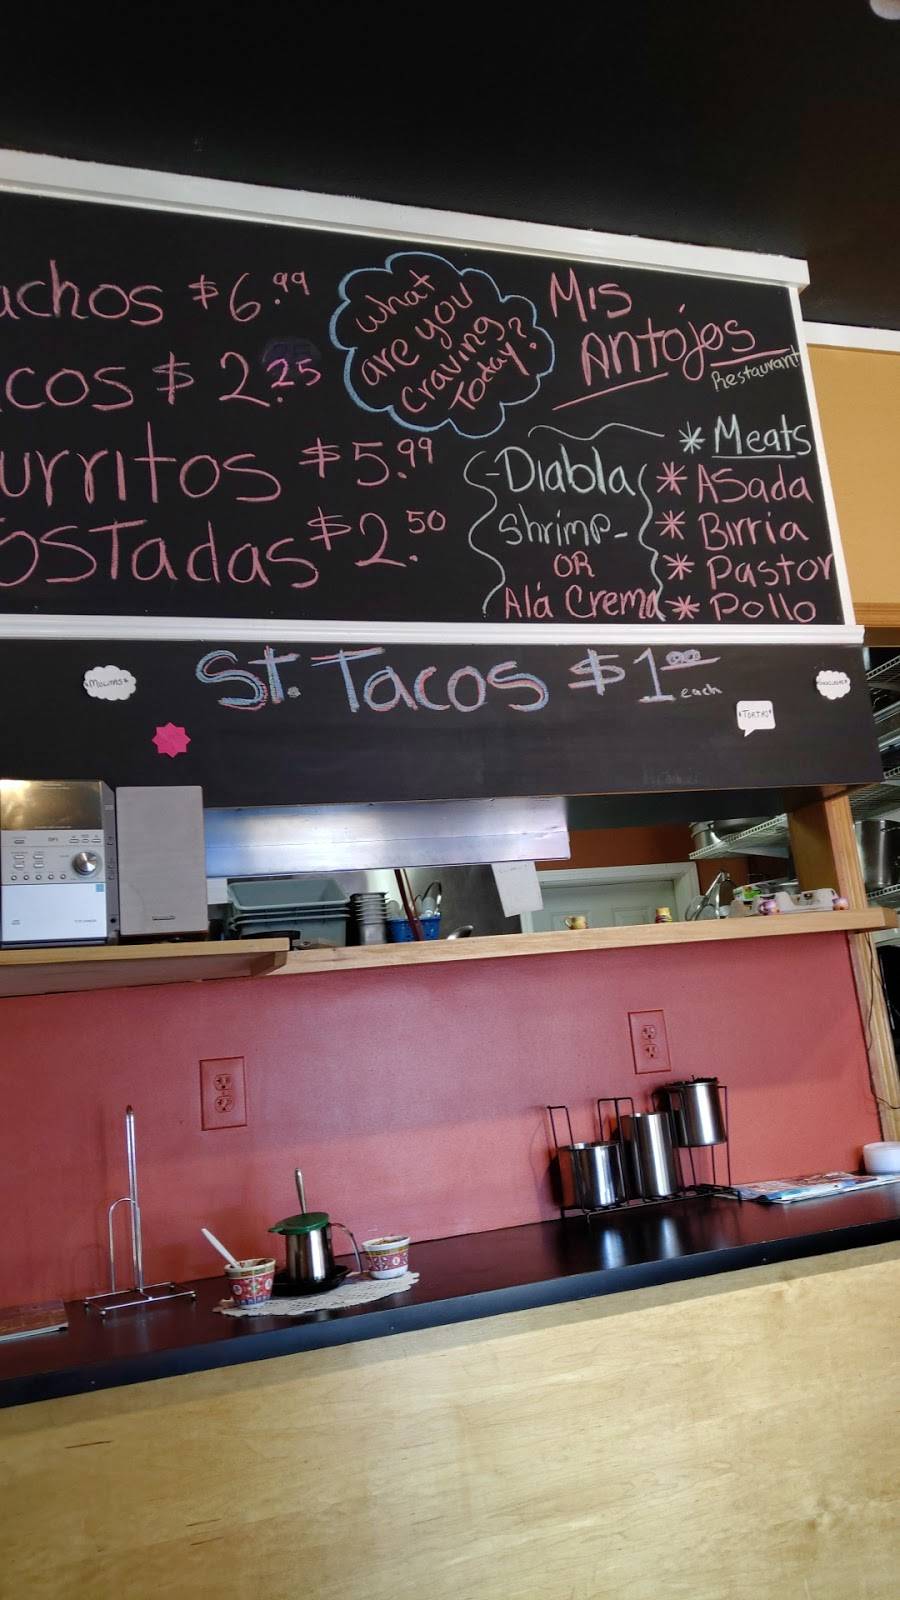 achos $6.99
cos $2.25
urritos $5.99
ostadas $2.50
What
are you
Craving
Today?
Mis
Antojos
Restaurant
* Meats
* Asada
* Birria
* Pastor
* Pollo
-Diabla
Shrimp-
OR
Alá Crema
St. Tacos $1.00 each
*TORTAS*